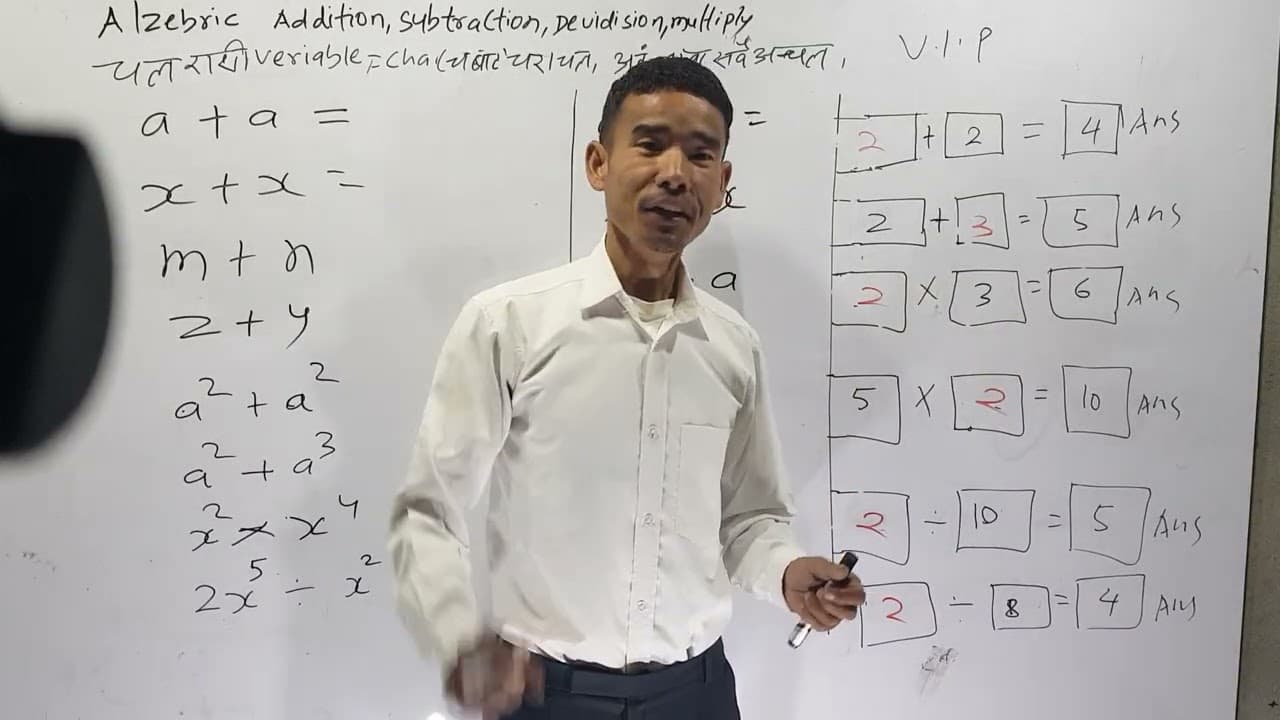 Alzebric Addition, Subtraction, Devidision, multiply
चल राशी veriable =
V.I.P
a + a =
x + x =
m + n
z + y
a² + a²
a² + a³
x² × x⁴
2x⁵ ÷ x²
=
x
a
2 + 2 = 4 Ans
2 + 3 = 5 Ans
2 × 3 = 6 Ans
5 × 2 = 10 Ans
2 ÷ 10 = 5 Ans
2 ÷ 8 = 4 Ans